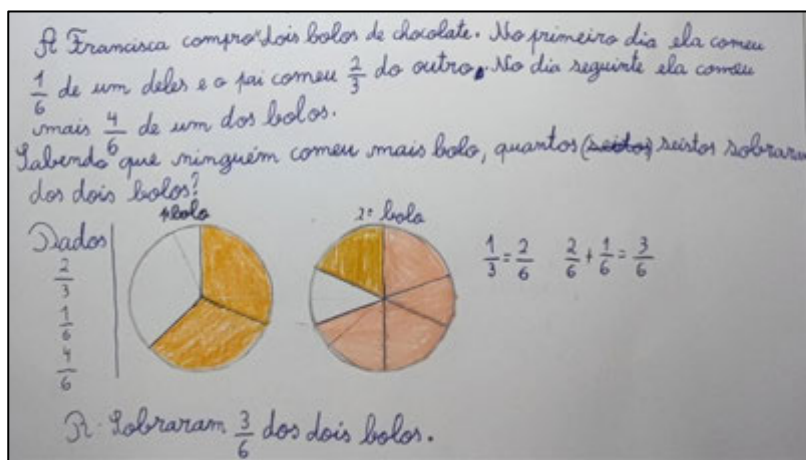 A Francisca comprou dois bolos de chocolate. No primeiro dia ela comeu
1/6 de um deles e o pai comeu 2/3 do outro. No dia seguinte ela comeu
mais 4/6 de um dos bolos.
Sabendo que ninguém comeu mais bolo, quantos seistos sobraram
dos dois bolos?
Dados
2/3
1/6
4/6
1º bolo
2º bolo
1/3 = 2/6 2/6 + 1/6 = 3/6
R: Sobraram 3/6 dos dois bolos.